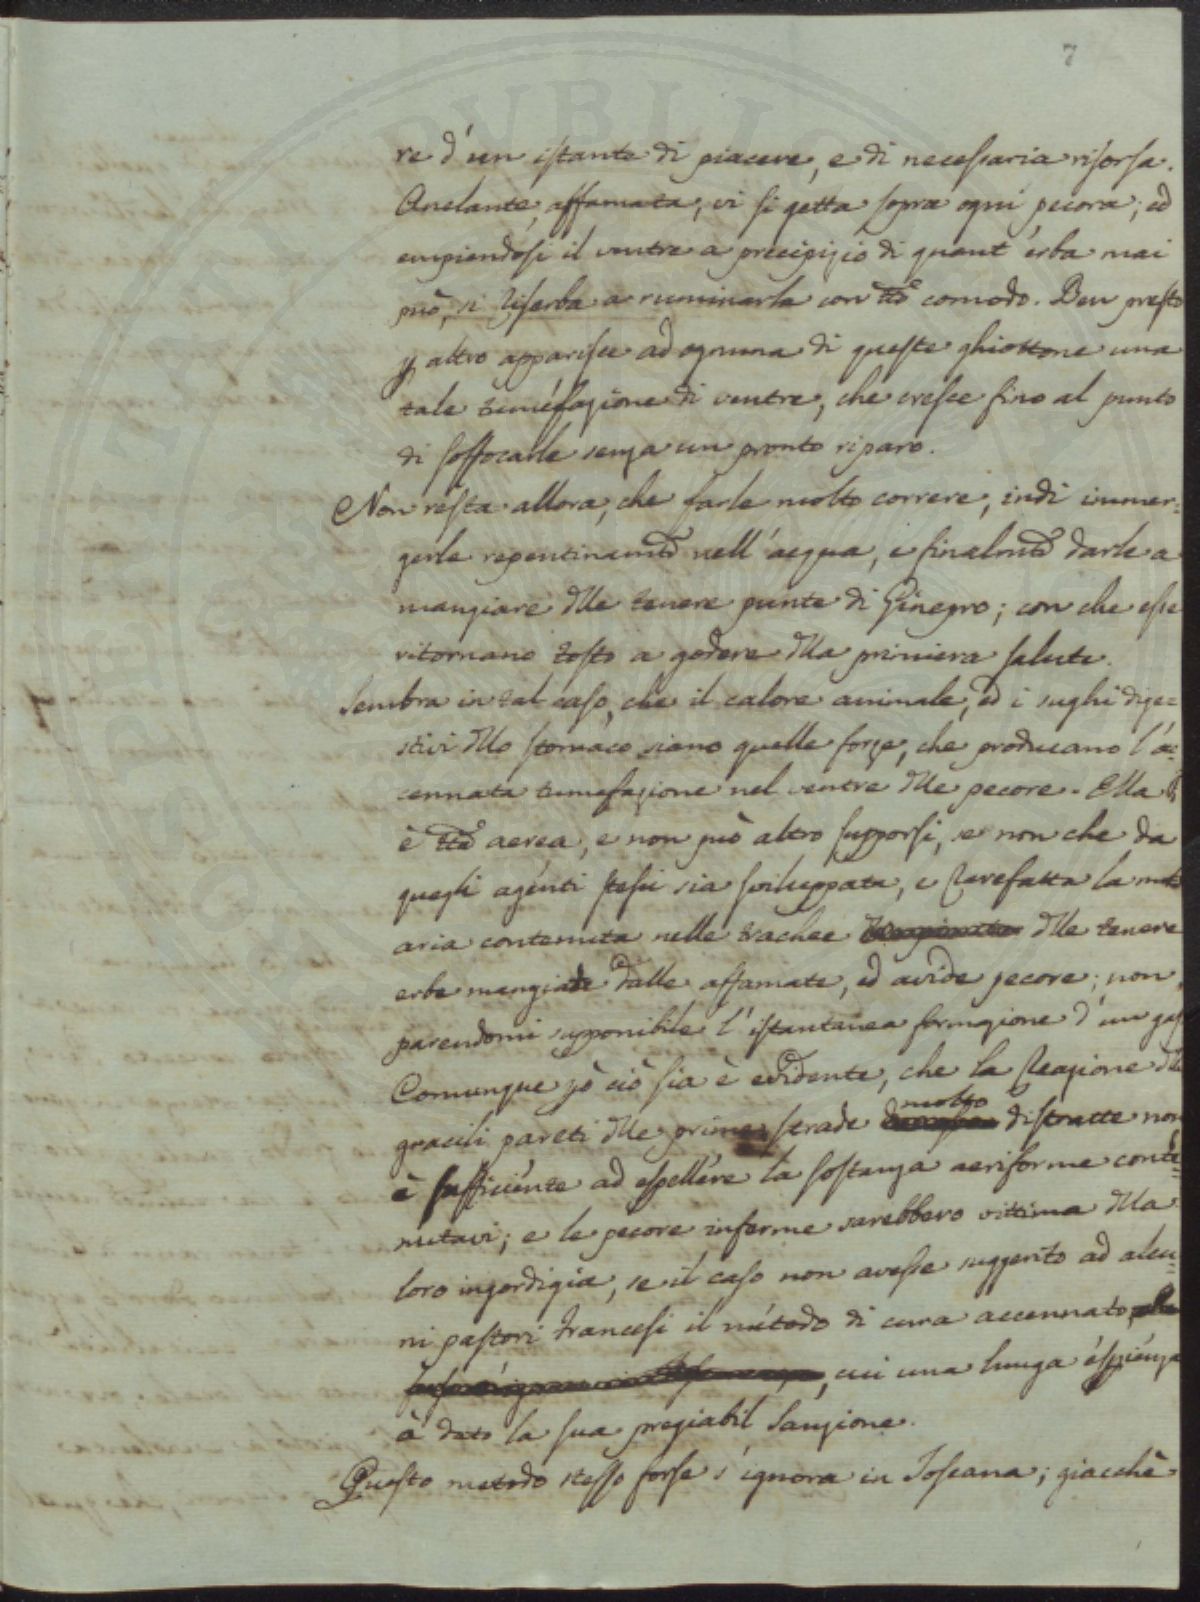 7
re d'un istante di piacere, e di necessaria risorsa.
Anelante, affamata, vi si getta sopra ogni pecora; ed
empiendosi il ventre a precipizio di quant'erba mai
può, si riserba a ruminarla con tt̃o comodo. Ben presto
p altro apparisce ad ognuna di queste ghiottone una
tale tumefazione di ventre, che cresce fino al punto
di soffocarle senza un pronto riparo.
Non resta allora, che farle molto correre, indi immer=
gerle repentinamte nell'acqua, e finalmte darle a
mangiare dlle tenere punte di Ginepro; con che esse
ritornano tosto a godere dlla primiera salute.
Sembra in tal caso, che il calore animale, ed i sughi dige=
stivi dllo stomaco siano quelle forze, che producano l'ac=
cennata tumefazione nel ventre dlle pecore. Ella
è tt̃a aerea, e non può altro supporsi, se non che da
quegli agenti stessi sia sviluppata, e rarefatta la molta
aria contenuta nelle trachee dlle tenere
erbe mangiate dalle affamate, ed avide pecore; non
parendomi supponibile l'istantanea formazione d'un gas
Comunque pò ciò sia è evidente, che la Reazione dlle
gracili pareti dlle prime strade molto distratte non
è sufficiente ad espellere la sostanza aeriforme conte=
nutavi; e le pecore inferme sarebbero vittima dlla
loro ingordigia, se il caso non avesse suggerito ad alcu=
ni pastori francesi il método di cura accennato,
cui una lunga espienza
à dato la sua pregiabil Sanzione.
Questo metodo stesso forse s'ignora in Toscana; giacchè